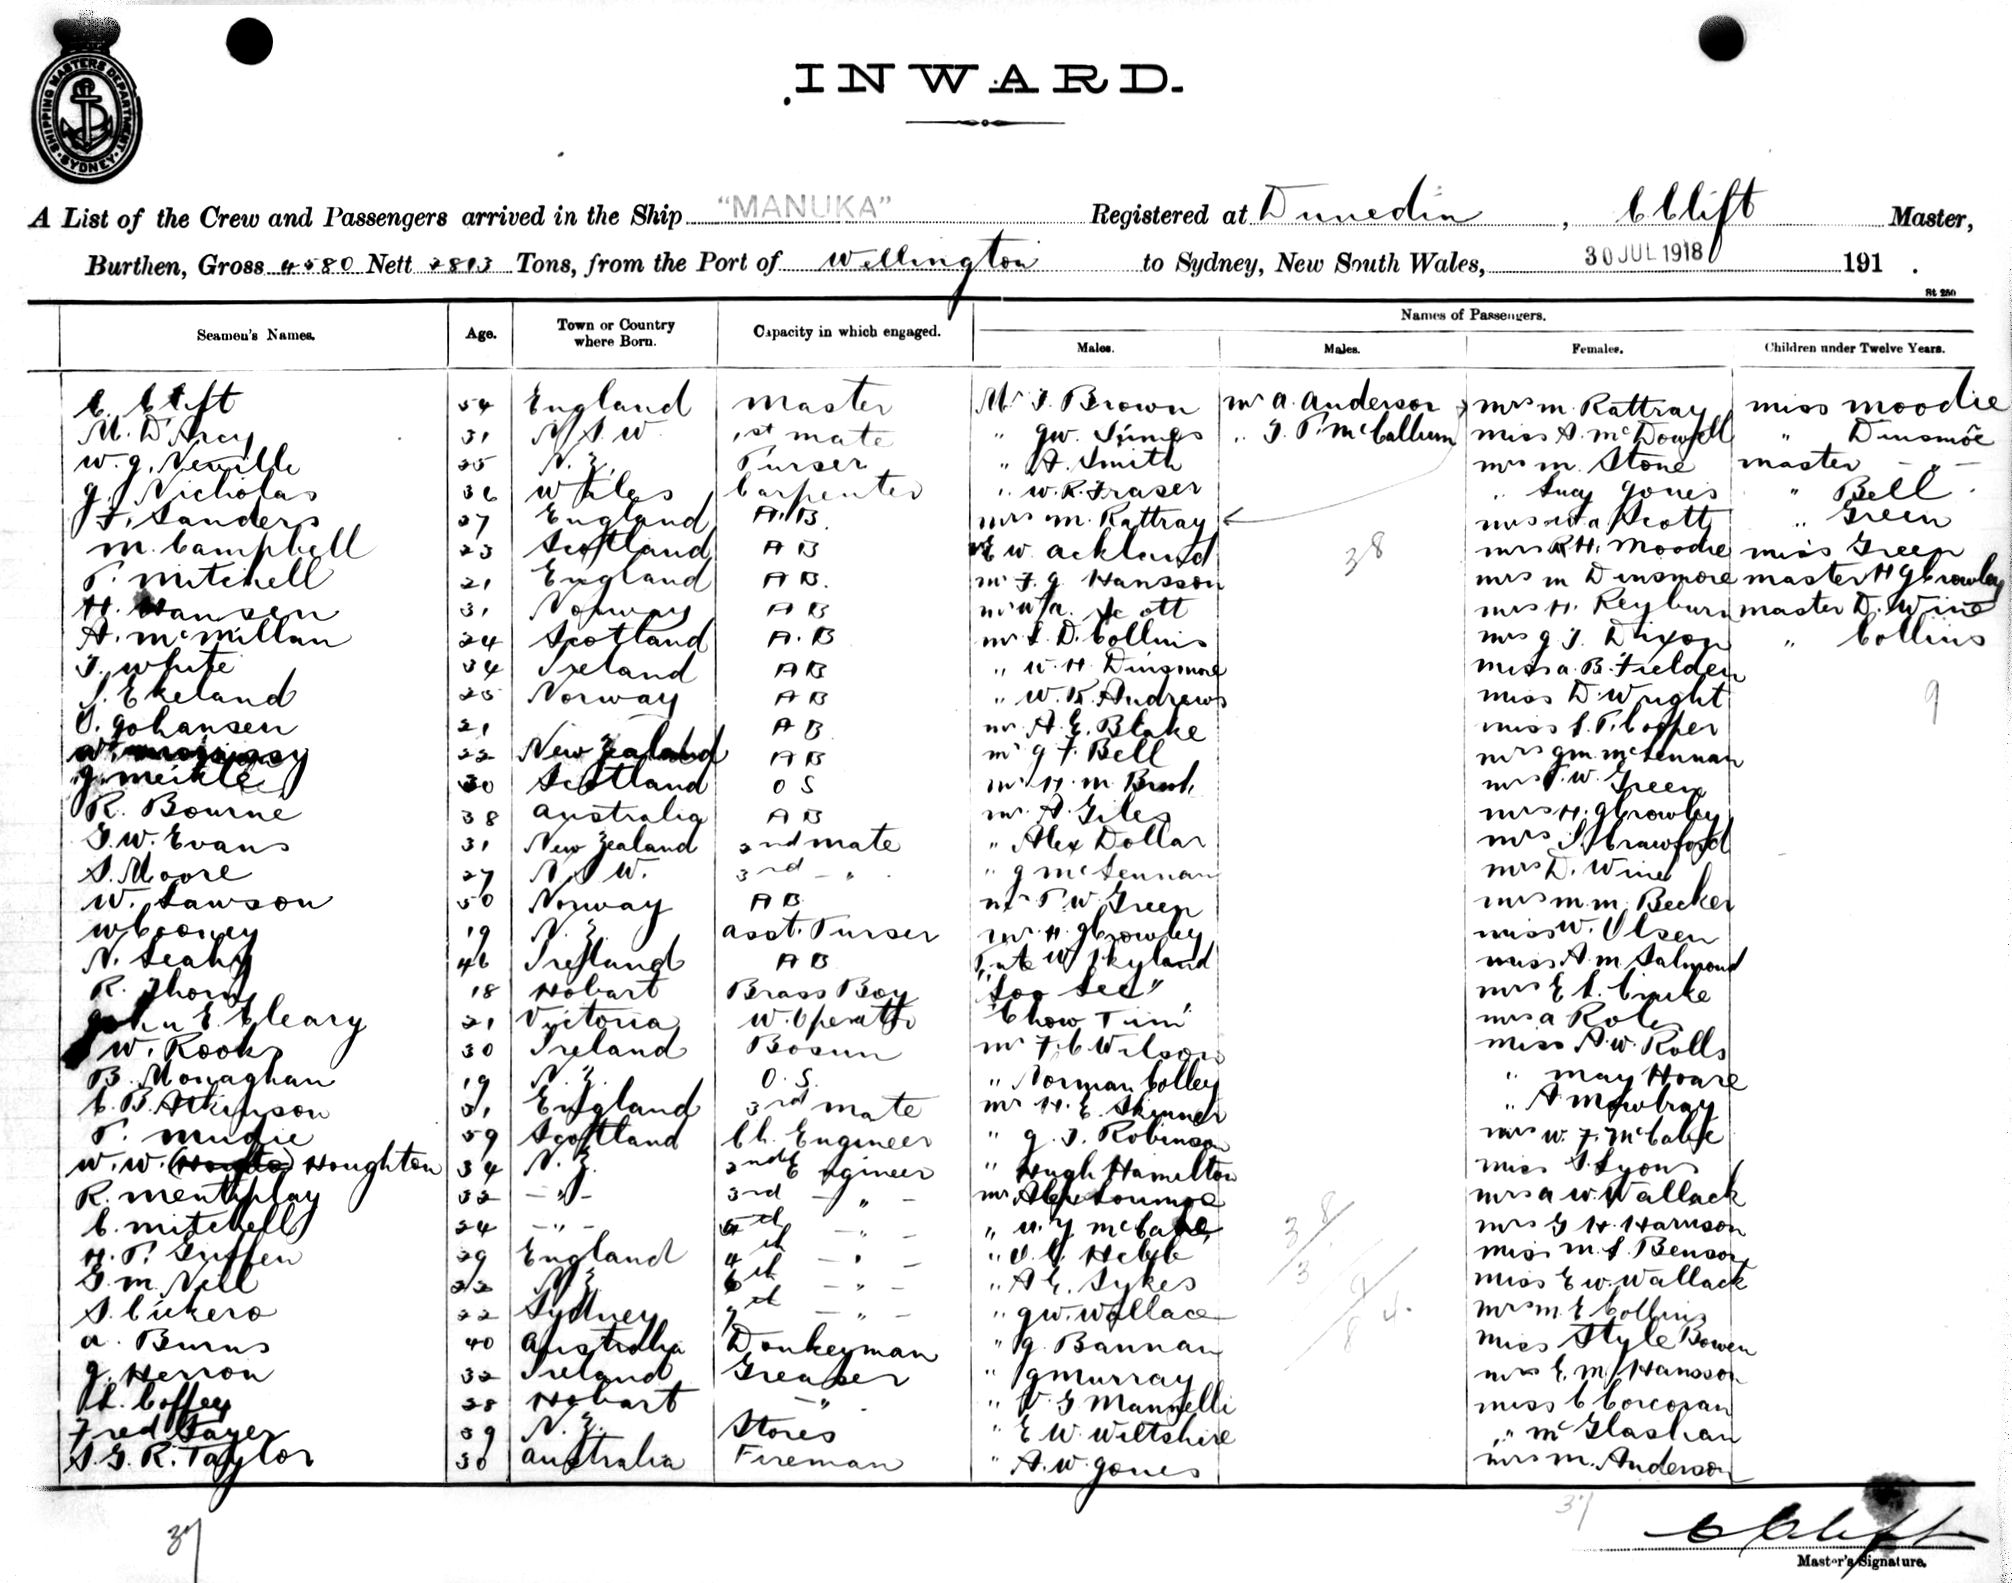 SHIPPING MASTERS DEPARTMENT
SYDNEY
INWARD.
A List of the Crew and Passengers arrived in the Ship "MANUKA" Registered at Dunedin, C Clift Master,
Burthen, Gross 4580 Nett Tons, from the Port of Wellington to Sydney, New South Wales, 30 JUL 1918 191 .
St 250
Seamen's Names. Age. Town or Country where Born. Capacity in which engaged. Names of Passengers.
Males. Males. Females. Children under Twelve Years.
C. Clift 54 England Master Mr J. Brown Mr A. Anderson Mrs M. Rattray Miss Moodie
M. D'Arcy 31 N.S.W. 1st mate " J. P. McCallum Miss A. McDowell " Dinsmore
W. J. Neville 25 N.Z. Purser " A. Smith Mrs M. Stone Master - " -
J. Nicholas 36 Wales Carpenter " W. R. Fraser " Lucy Jones " Bell
F. Sanders 27 England A.B. Mrs M. Rattray Mrs Scott " Green
M. Campbell 23 Scotland A B E W Ackland Mrs R H. Moodie Miss Green
P. Mitchell 21 England A B. Mr F. J Hansson Mrs M Dinsmore Master H J Crowley
H. Hansen 31 Norway A B Mr Scott Mrs H. Reyburn Master D. Wine
A. McMillan 24 Scotland A.B Mr S. D. Collins Mrs J. J. Dixon " Collins
J. White 34 Ireland A B " W. H. Dinsmore Miss A. B. Fielden
S. Ekeland 25 Norway A B " W. R. Andrews Miss D. Wright
O. Johansen 21 A B Mr A. E. Blake Miss Cooper
22 New Zealand A B Mr J F. Bell Mrs J M. McLennan
J. Meikle 30 Scotland O S Mr H. M. Mrs P. W. Green
R. Bourne 38 Australia A B Mr A. Giles Mrs H. J Crowley
G. W. Evans 31 New Zealand 2nd mate " Alex Dollar Mrs Crawford
S. Moore 27 N.S.W. 3rd - " " J McLennan Mrs D. Wine
W. Lawson 50 Norway A B Mr P W Green Mrs M. M. Becker
W Cooney 19 N.Z. asst. Purser Mr H. J Crowley Miss W. Olsen
N. Leahy 46 Ireland A B W Ryland Miss A. M Salmond
R. Thom 18 Hobart Brass Boy "Loo Lee" Mrs E
John E. Cleary 21 Victoria W. Operator "Chow Tim" Mrs A
W. Rooks 30 Ireland Bosun Mr F. C Wilson Miss A. W. Rolls
B. Monaghan 19 N.Z. O.S. " Norman Colley " May Hoare
C. B. Atkinson 31 England 3rd mate Mr H. E. Skinner " A Mowbray
P. Mudie 59 Scotland Ch. Engineer " J. J. Robinson Mrs W. F. McCabe
W. W. Houghton 34 N.Z. 2nd Engineer " Hugh Hamilton Miss Lyons
R. Mentiplay 32 - " - 3rd - " - Mr Alex Mrs A W. Wallack
C. Mitchell 24 - " - 5th - " - " McCabe Mrs G H. Harrison
H. P. Giffen 29 England 4th - " - " Hebb Miss M. S. Benson
G. M. Nell 22 N.Z. 6th - " - " A E. Sykes Miss E W. Wallack
S. Cickero 22 Sydney 7th - " - " J W. Wallace Mrs M. E Collins
A. Burns 40 Australia Donkeyman " J. Bannan Miss Style Bowen
J. Herron 32 Ireland Greaser " J Murray Mrs E. M. Hansson
Coffey 28 Hobart - " - " V. G Mannelli Miss C Corcoran
Fred Sayer 39 N.Z. Stores " E W. Wiltshire " McGlashan
S. G. R. Taylor 30 Australia Fireman " A. W. Jones Mrs M. Anderson
38
9
37
37
C Clift
Master's Signature.